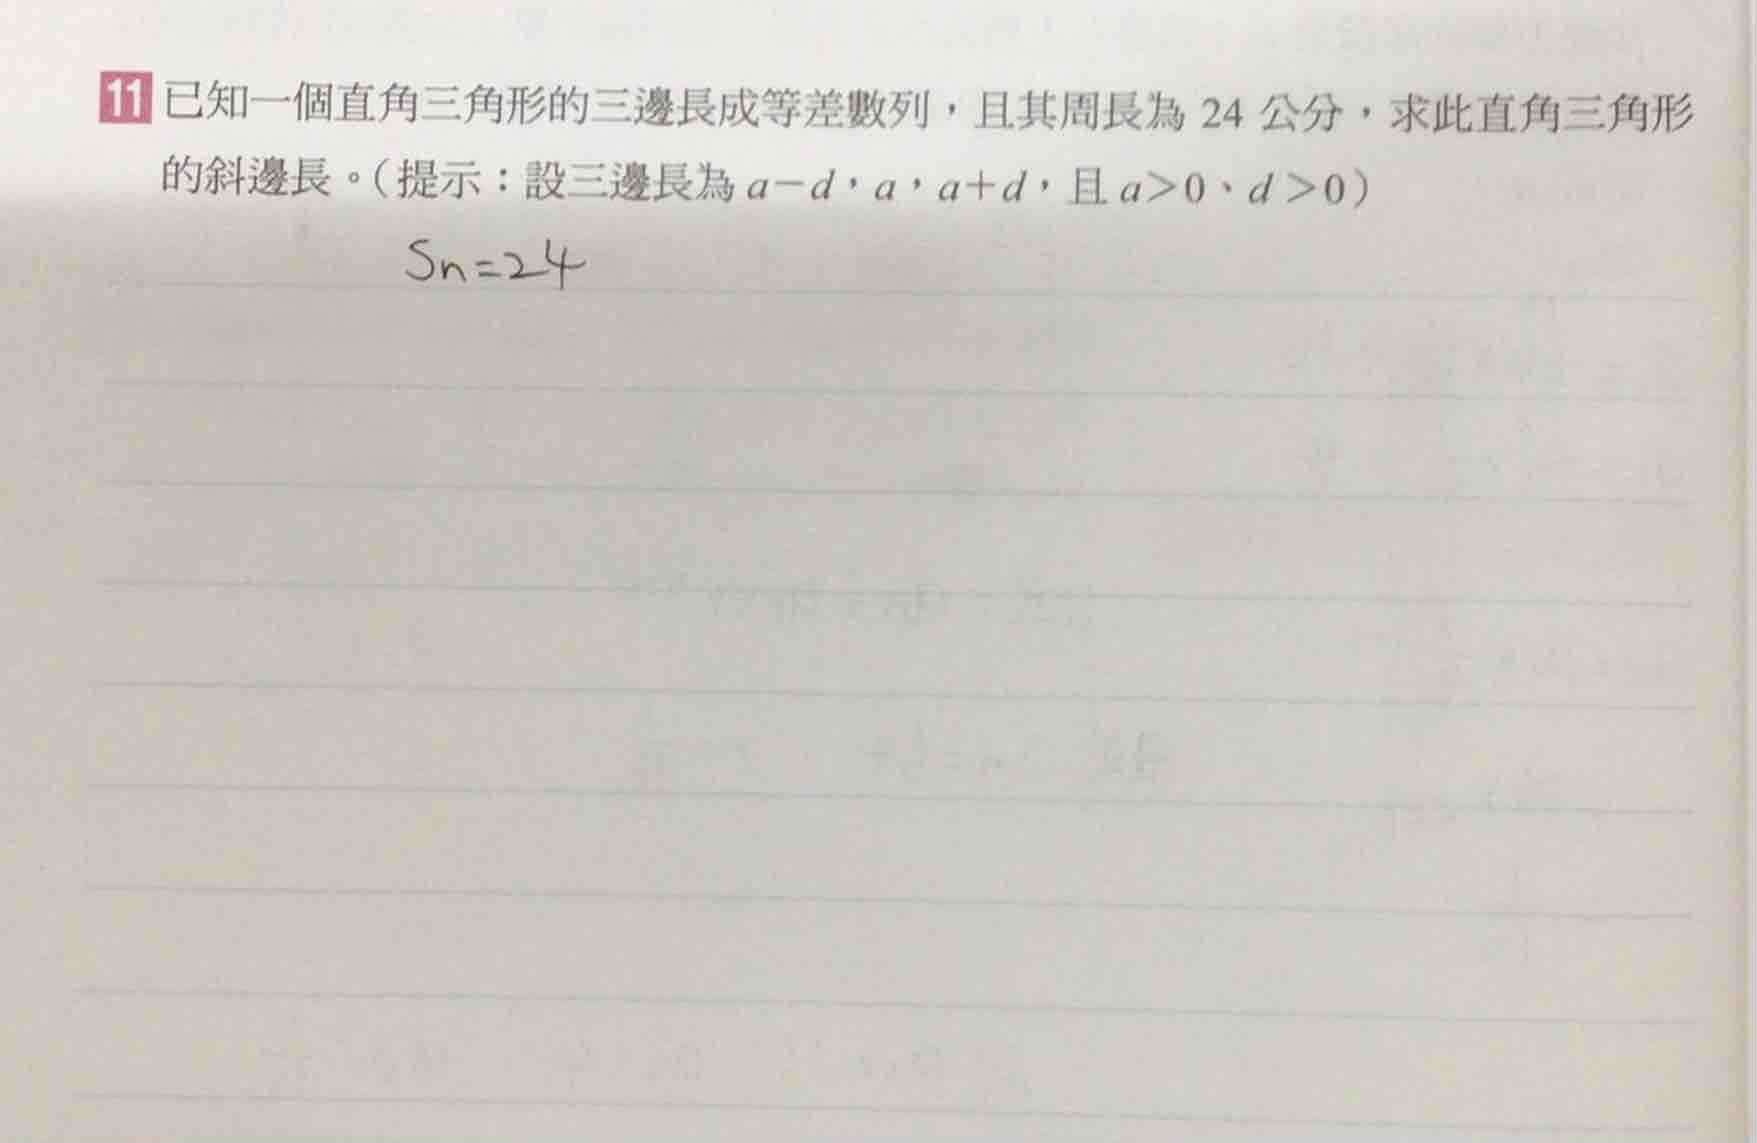 11 已知一個直角三角形的三邊長成等差數列，且其周長為 24 公分，求此直角三角形
的斜邊長。（提示：設三邊長為 a－d，a，a＋d，且 a＞0、d＞0）
Sn=24